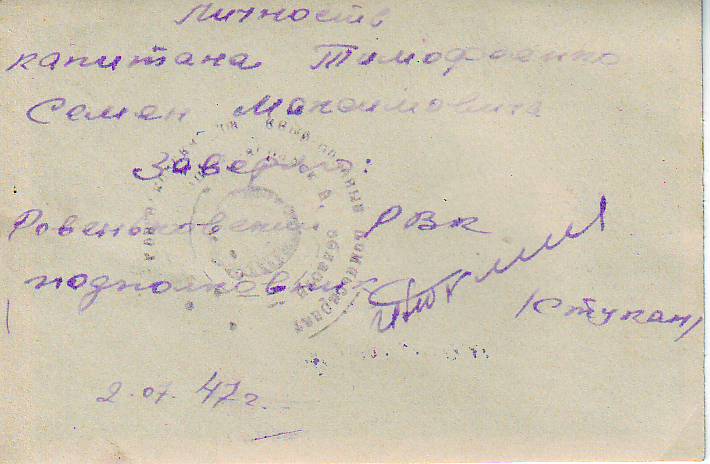 Личность
капитана Тимофеенко
Семен Максимовича
Заверяю:
Ровеньковский РВК
подполковник
/Ступак/
2.07.47г.